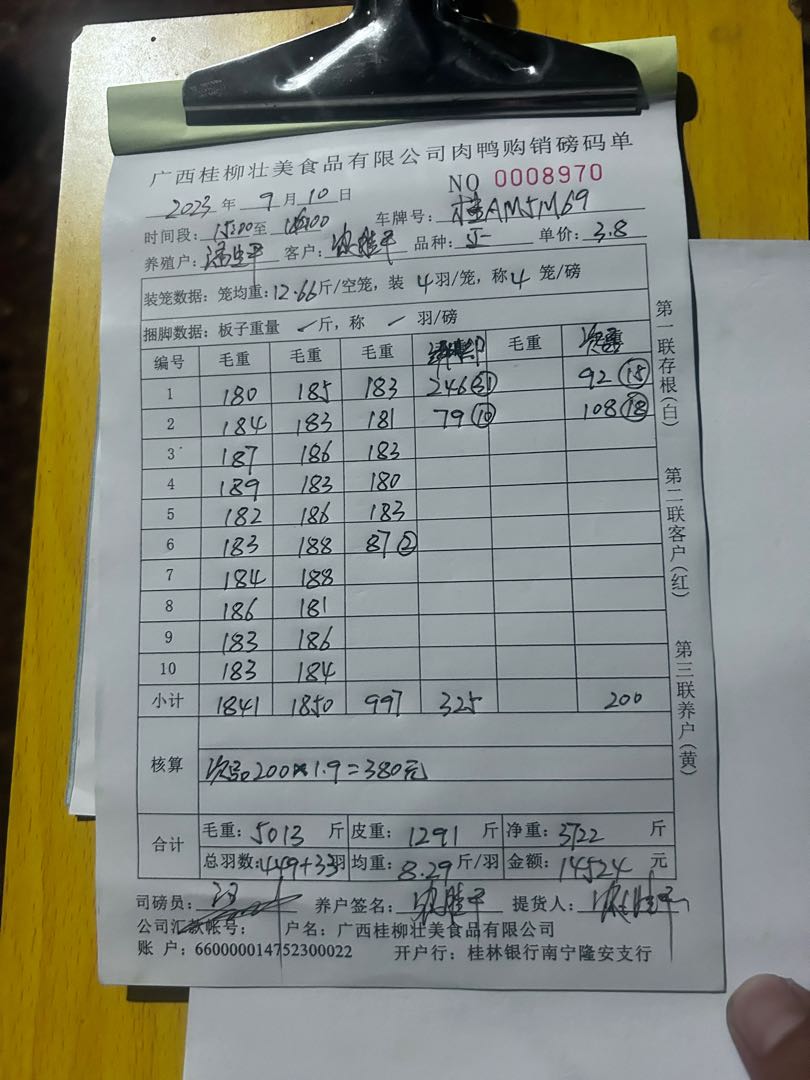 广西桂柳壮美食品有限公司肉鸭购销磅码单
2023 年 9 月 10 日 NO 0008970
时间段: 15:00 至 16:00 车牌号: 桂AM5M69
养殖户: 客户: 品种: 单价: 3.8
装笼数据: 笼均重: 12.66 斤/空笼, 装 4 羽/笼, 称 4 笼/磅
捆脚数据: 板子重量 斤, 称 羽/磅
编号 毛重 毛重 毛重 毛重
1 180 185 183 246 31 92 15
2 184 183 181 79 10 108 18
3 187 186 183
4 189 183 180
5 182 186 183
6 183 188 87 2
7 184 188
8 186 181
9 183 186
10 183 184
小计 1841 1850 997 325 200
核算 次品200×1.9=380元
合计 毛重: 5013 斤 皮重: 1291 斤 净重: 3722 斤
总羽数: 449+33羽 均重: 8.29 斤/羽 金额: 14524 元
司磅员: 养户签名: 提货人:
公司汇款帐号: 户名: 广西桂柳壮美食品有限公司
账 户: 660000014752300022 开户行: 桂林银行南宁隆安支行
第一联存根(白) 第二联客户(红) 第三联养户(黄)